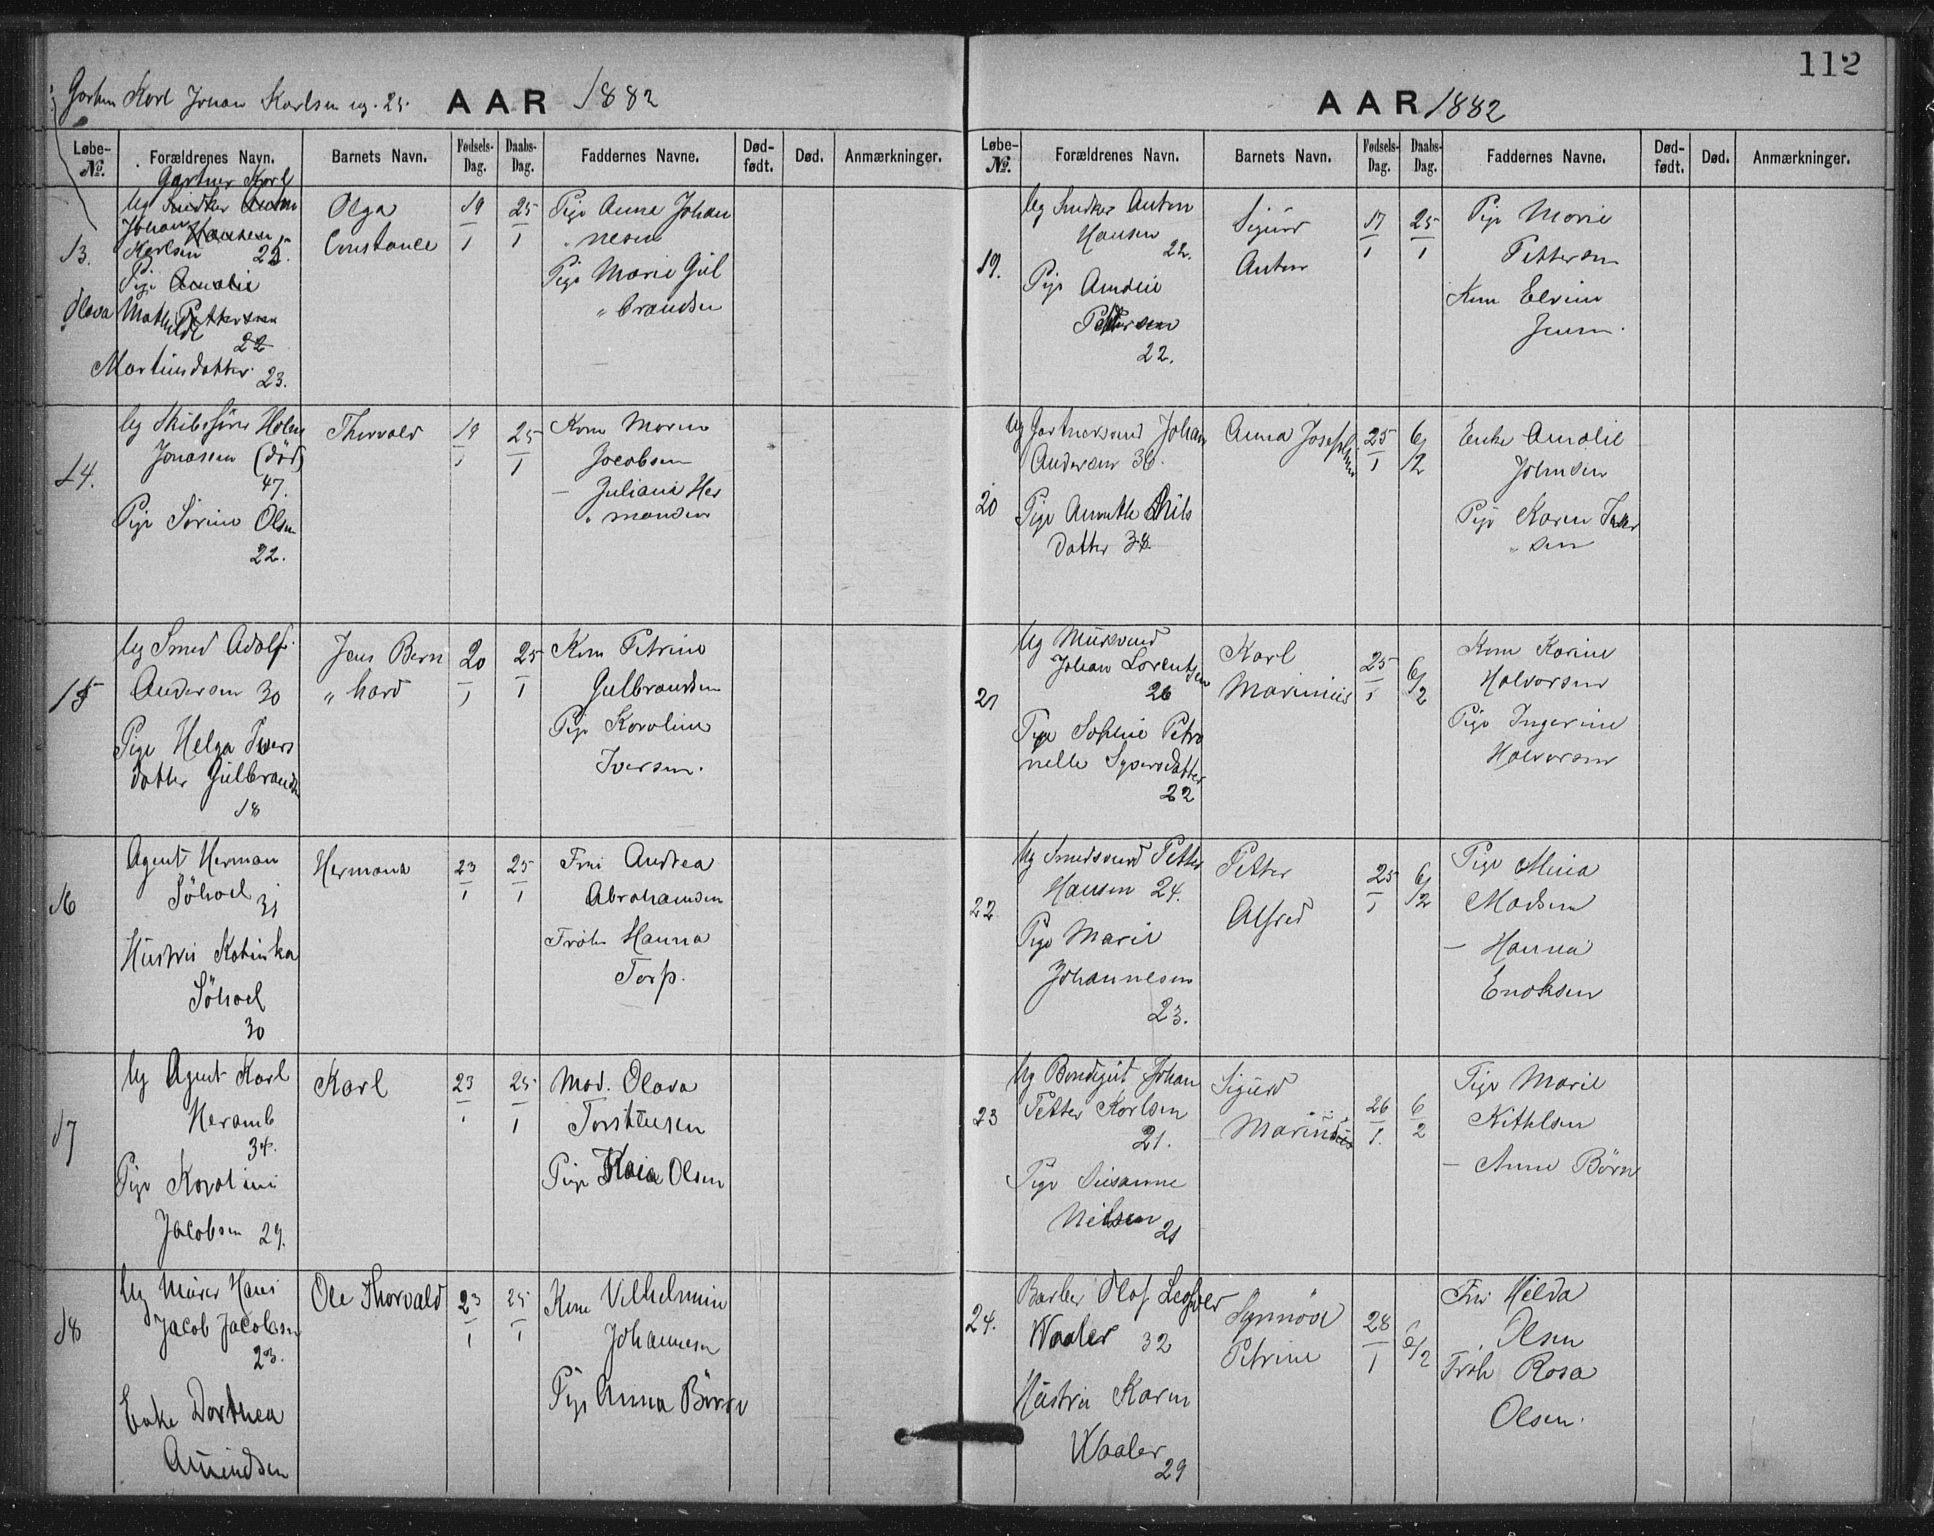 Gartner Karl Johan Karlsen ug. 25.
AAR 1882
Løbe-
No.
Forældrenes Navn.
Barnets Navn.
Fødsels-
Dag.
Daabs-
Dag.
Faddernes Navne.
Død-
født.
Død.
Anmærkninger.
13.
Gartner Karl
Ug Snedker Anton
Johan Hansen
Karlsen 25.
Pige Amalie
Olava Mathilde Pettersen
22
Martinsdatter 23.
Olga
Constance
19
1
25
1
Pige Anne Johan
" nesen
Pige Marie Gul
" brandsen
14.
Ug Skibsfører Holm
Jonasen (død)
47.
Pige Sorine Olsen
22.
Thorvald
19
1
25
1
Kone Maren
Jacobsen
— Juliane Her
" mansen
15
Ug Smed Adolf
Andersen 30
Pige Helga Ivers
datter Gulbrandsen
18
Jens Bern
" hard
20
1
25
1
Kone Petrine
Gulbrandsen
Pige Karoline
Iversen.
16
Agent Herman
Søhoel 31
Hustru Katinka
Søhoel
30
Hermana
23
1
25
1
Fru Andrea
Abrahamsen
Frøken Hanna
Torp.
17
Ug Agent Karl
Heramb
34.
Pige Karoline
Jacobsen 29.
Karl
23
1
25
1
Mad. Olava
Torstensen
Pige Kaia Olsen
18
Ug Murer Hans
Jacob Jacobsen
23.
Enke Dorthea
Amundsen
Ole Thorvald
23
1
25
1
Kone Vilhelmine
Johannesen
Pige Anna Børre
112
AAR 1882
Løbe-
No.
Forældrenes Navn.
Barnets Navn.
Fødsels-
Dag.
Daabs-
Dag.
Faddernes Navne.
Død-
født.
Død.
Anmærkninger.
19.
Ug Snedker Anton
Hansen
22.
Pige Amalie
Pettersen
22.
Sigurd
Anton
17
1
25
1
Pige Marie
Pettersen
Kone Elvine
Jensen.
20
Ug Gartnersvend Johan
Andersen 36.
Pige Annette Nils
datter 38.
Anna Josephine
25
1
6/2
Enke Amalie
Johnsen
Pige Karen Iver
" sen
21
Ug Mursvend
Johan Lorentsen
26
Pige Sophie Petro
nelle Syversdatter
22
Karl
Marinius
25
1
6/2
Kone Karine
Halvorsen
Pige Ingerine
Halvorsen
22
Ug Smedsvend Petter
Hansen 24.
Pige Marie
Johannesen
23.
Petter
Alfred
25
1
6/2
Pige Mina
Madsen
— Hanna
Enoksen
23
Ug Bondegut Johan
Petter Karlsen
21.
Pige Susanne
Nilsen 21
Sigurd
Marinius
26
1.
6
2
Pige Marie
Kittelsen
— Anne Børre
24.
Barber Olaf
Waaler 32
Hustru Karen
Waaler 29
Synnøve
Petrine
28
1
6/2
Fru Hilda
Olsen
Frøk Rosa
Olsen.